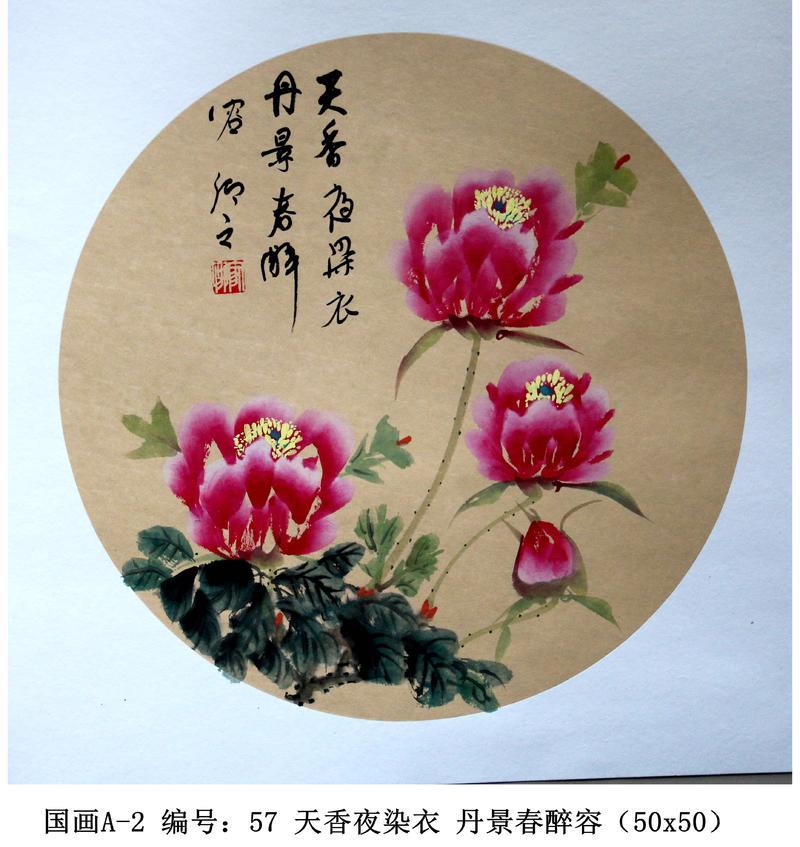 天香夜染衣
丹景春醉
容 卿之
国画A-2 编号：57 天香夜染衣 丹景春醉容（50x50）